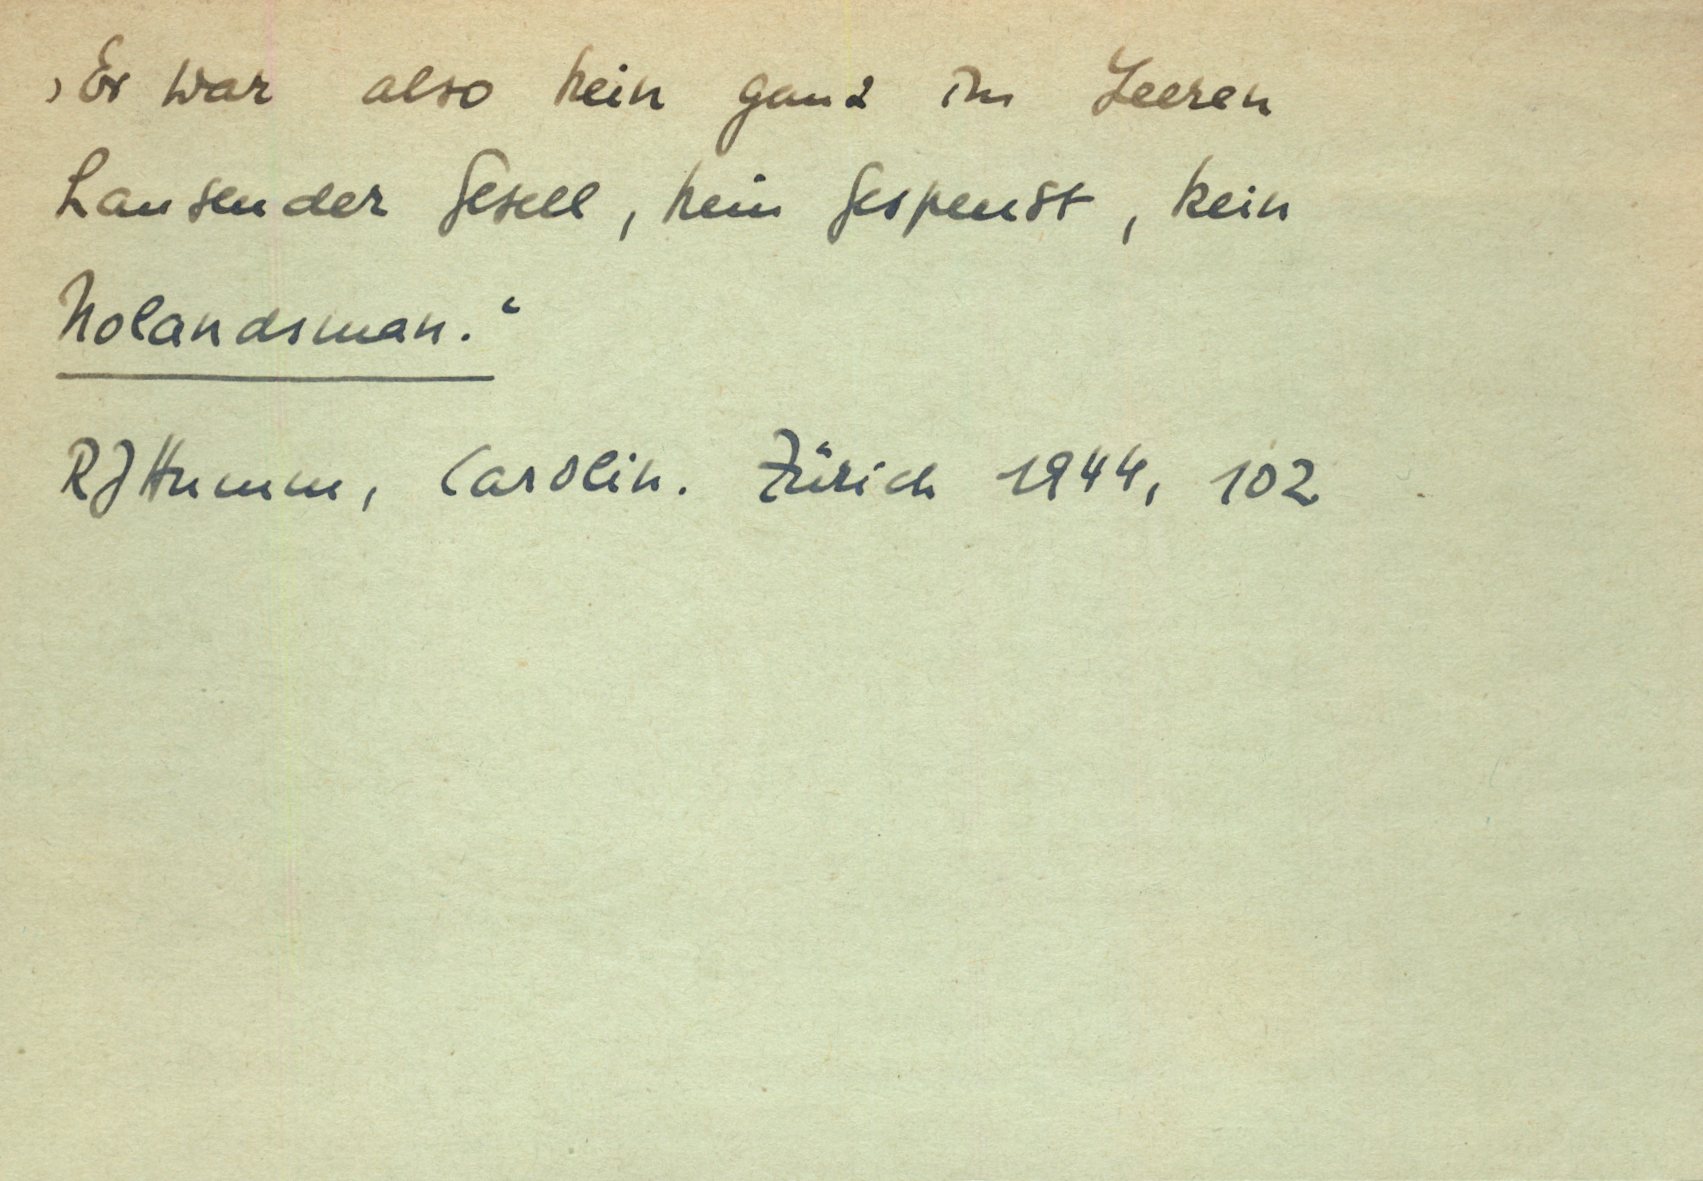 ‚Er war also kein ganz im Leeren
hausender Gesell, kein Gespenst, kein
Nolandsman.‘
RJHumm, Carolin. Zürich 1944, 102